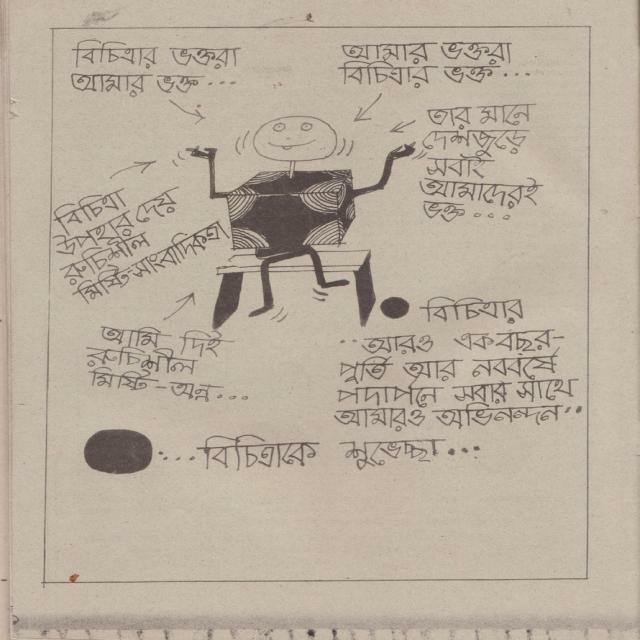 বিচিত্রার ভক্তরা
আমার ভক্ত...
আমার ভক্তরা
বিচিত্রার ভক্ত...
তার মানে
দেশজুড়ে
সবাই
আমাদেরই
ভক্ত...
বিচিত্রা
উপহার দেয়
রুচিশীল
মিষ্টি-সাংবাদিকতা
আমি দিই
রুচিশীল
মিষ্টি-অন্ন...
বিচিত্রার
..আরও একবছর-
পূর্তি আর নববর্ষে
পদার্পনে সবার সাথে
আমারও অভিনন্দন..
...বিচিত্রাকে শুভেচ্ছা...